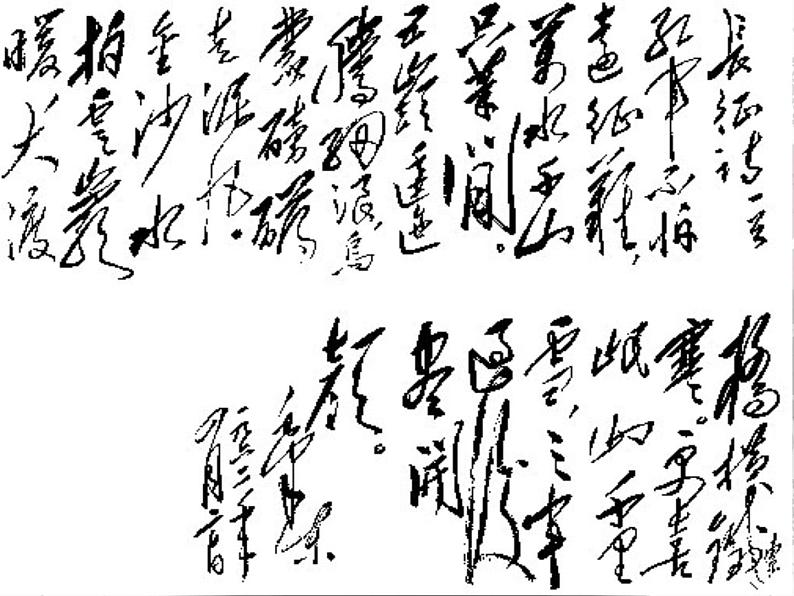 長征詩一首
紅軍不怕
遠征難，
萬水千山
只等閒。
五嶺逶迤
騰細浪烏
蒙磅礴
走泥丸。
金沙水
拍雲巖
暖大渡
橋橫鐵索
寒。更喜
岷山千里
雪，三軍
過後
盡開
顏。
毛澤東
一九六二年
四月